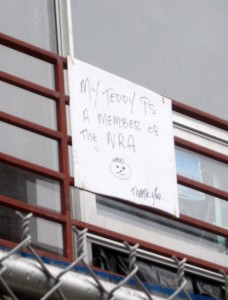 MY TEDDY IS
A MEMBER OF
the NRA
Thank you